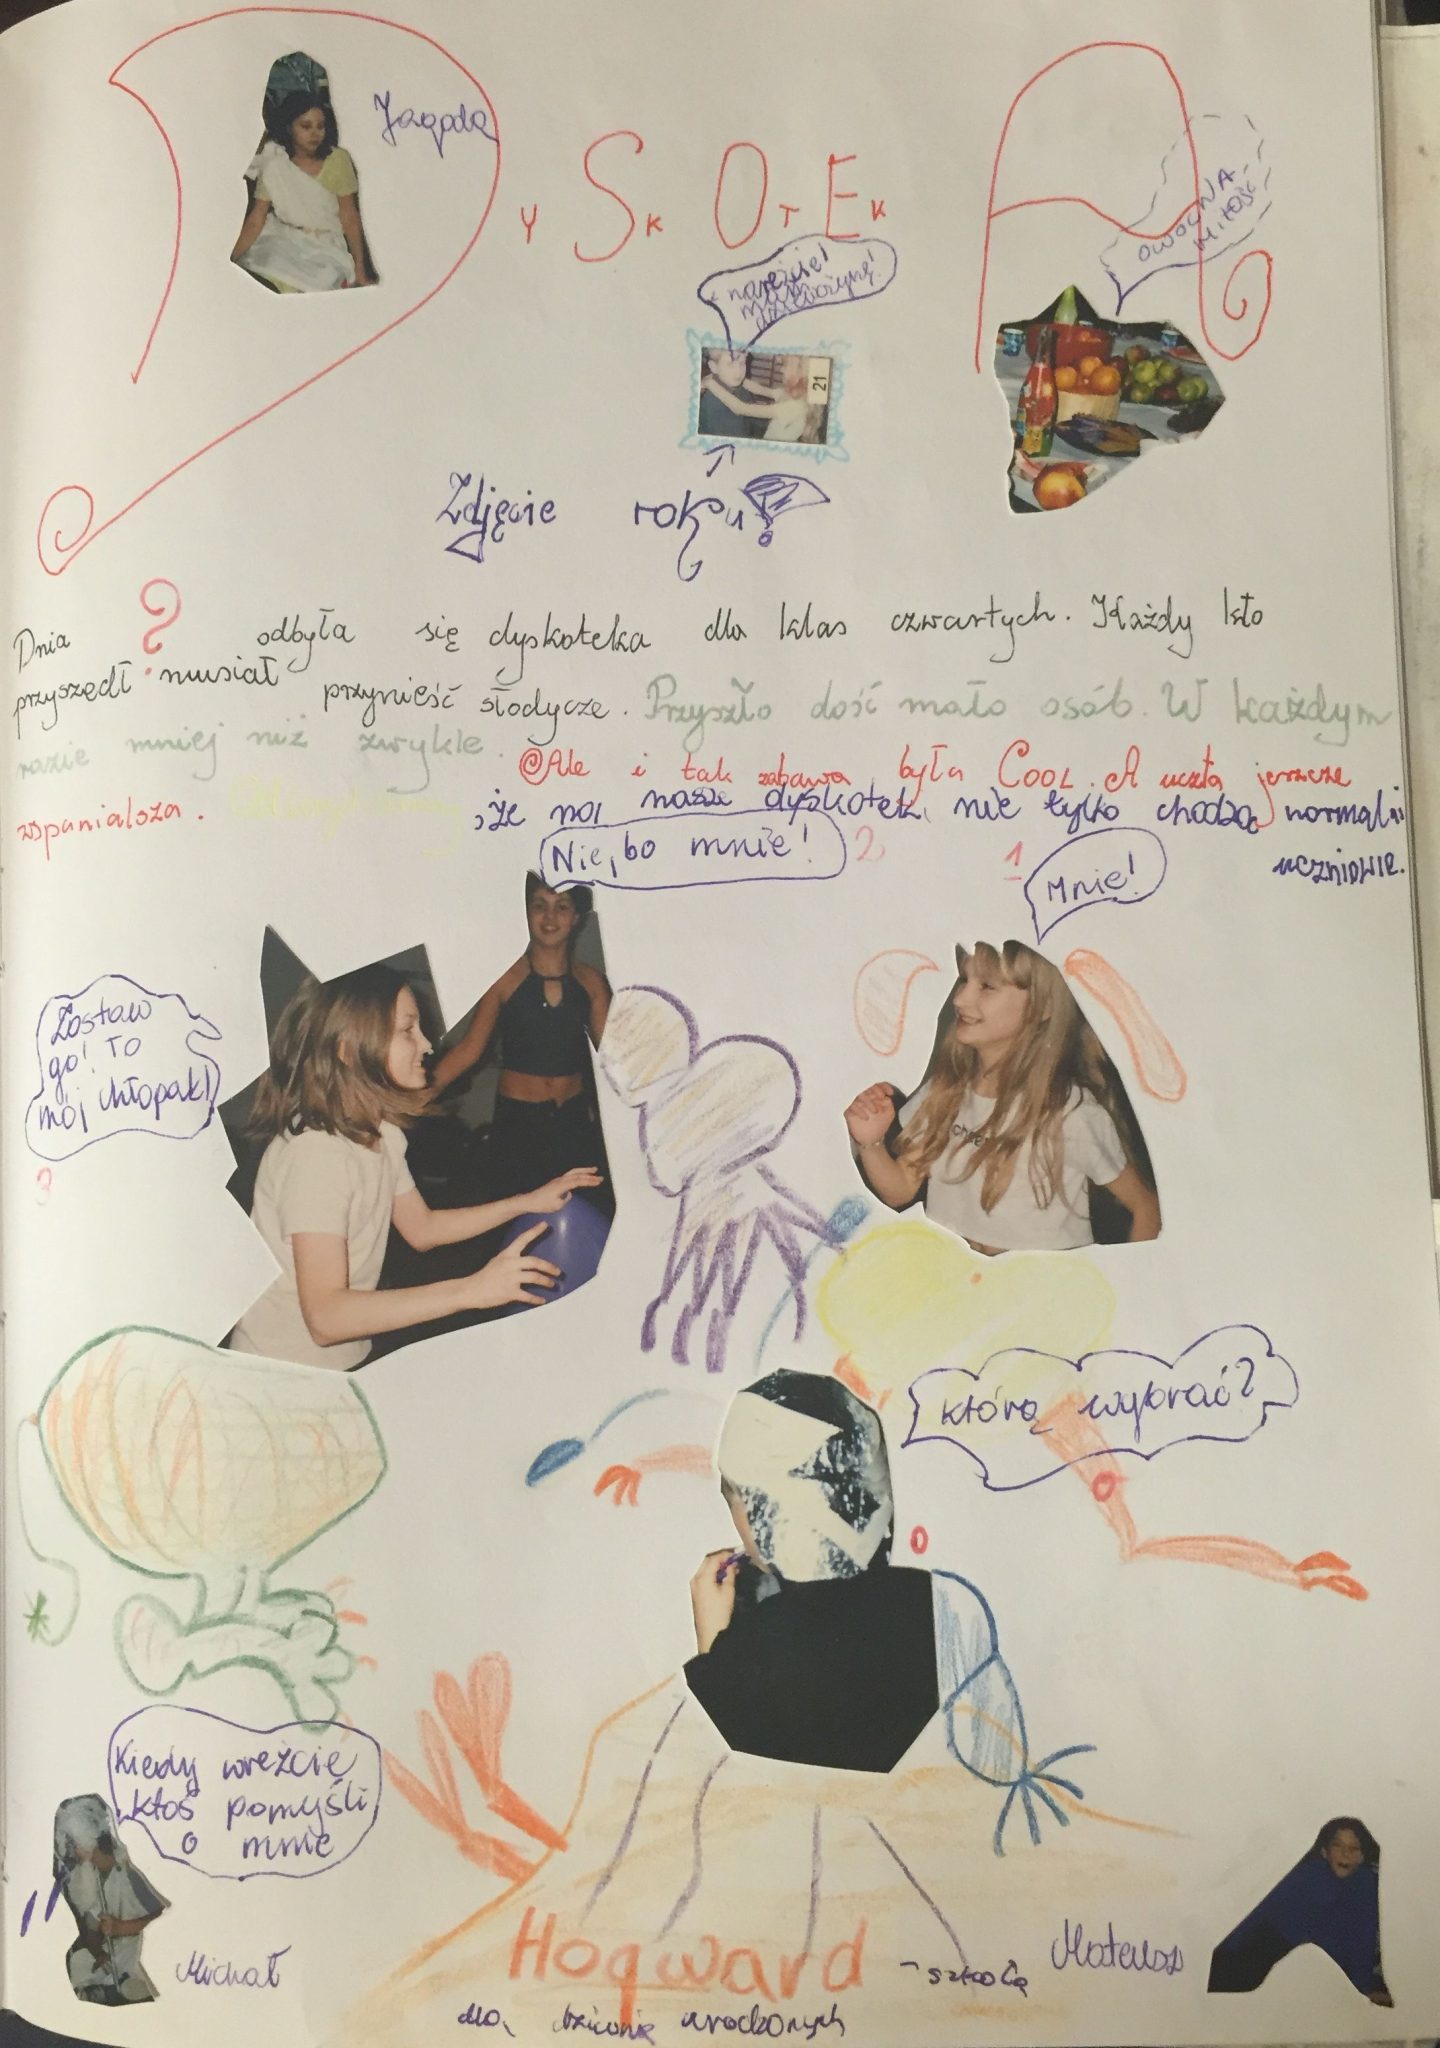 Jagoda
DySkOtEkA
nareźcie!
mam
dziewczynę!
OWOCOWA
MIŁOŚĆ
21
Zdjęcie roku!
Dnia ? odbyła się dyskoteka dla klas czwartych. Każdy kto
przyszedł musiał przynieść słodycze. Przyszło dość mało osób. W każdym
razie mniej niż zwykle. Ale i tak zabawa była COOL. A uczta jeszcze
wspanialsza.
, że na nasze dyskotek nie tylko chodzą normalni
uczniowie.
Nie, bo mnie! 2
1 Mnie!
Zostaw
go! To
mój chłopak!
3
którą wybrać?
Kiedy wreźcie
ktoś pomyśli
o mnie
Michał
Hogward - szkoła
dla dziwnie urodzonych
Mateusz